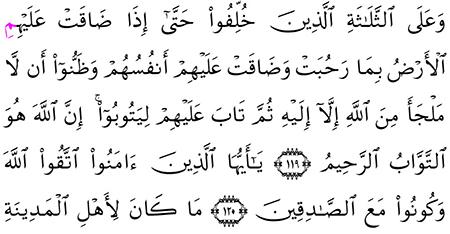 وَعَلَى ٱلثَّلَٰثَةِ ٱلَّذِينَ خُلِّفُوا۟ حَتَّىٰٓ إِذَا ضَاقَتْ عَلَيْهِمُ
ٱلْأَرْضُ بِمَا رَحُبَتْ وَضَاقَتْ عَلَيْهِمْ أَنفُسُهُمْ وَظَنُّوٓا۟ أَن لَّا
مَلْجَأَ مِنَ ٱللَّهِ إِلَّآ إِلَيْهِ ثُمَّ تَابَ عَلَيْهِمْ لِيَتُوبُوٓا۟ ۚ إِنَّ ٱللَّهَ هُوَ
ٱلتَّوَّابُ ٱلرَّحِيمُ ﴿١١٩﴾ يَٰٓأَيُّهَا ٱلَّذِينَ ءَامَنُوا۟ ٱتَّقُوا۟ ٱللَّهَ
وَكُونُوا۟ مَعَ ٱلصَّٰدِقِينَ ﴿١٢٠﴾ مَا كَانَ لِأَهْلِ ٱلْمَدِينَةِ